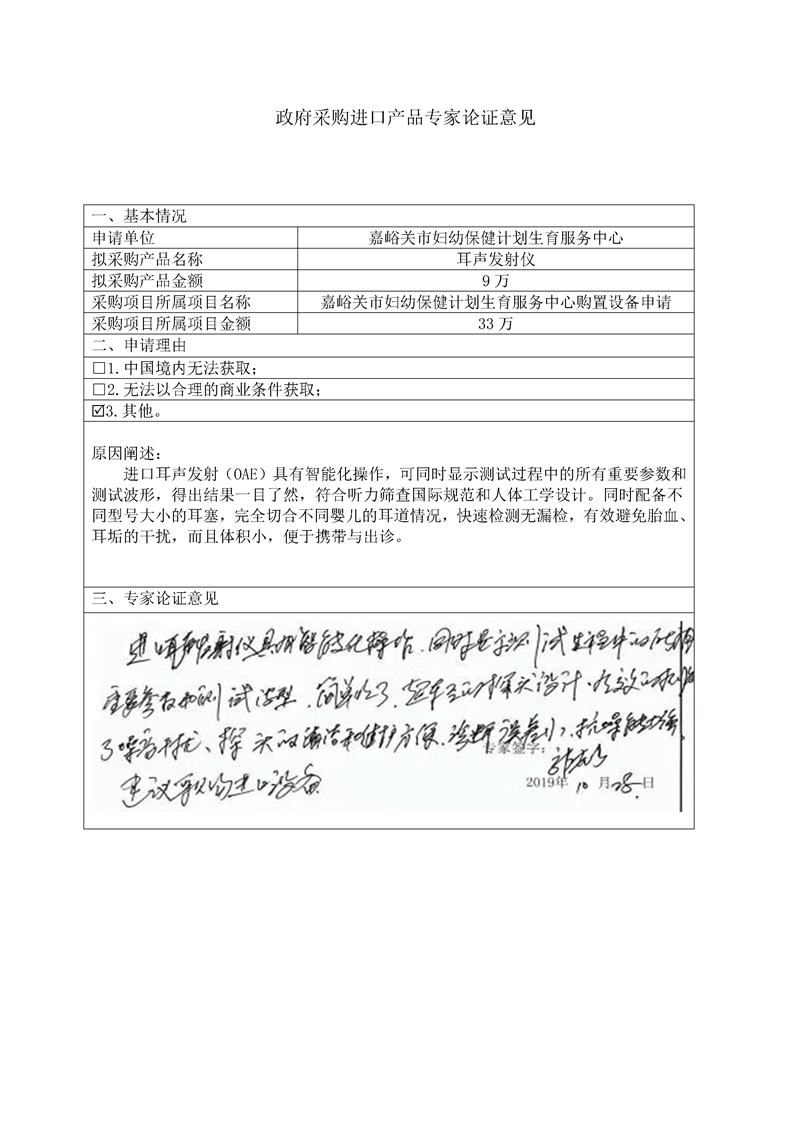 政府采购进口产品专家论证意见
一、基本情况
申请单位 嘉峪关市妇幼保健计划生育服务中心
拟采购产品名称 耳声发射仪
拟采购产品金额 9 万
采购项目所属项目名称 嘉峪关市妇幼保健计划生育服务中心购置设备申请
采购项目所属项目金额 33 万
二、申请理由
□1.中国境内无法获取；
□2.无法以合理的商业条件获取；
☑3.其他。
原因阐述：
进口耳声发射（OAE）具有智能化操作，可同时显示测试过程中的所有重要参数和
测试波形，得出结果一目了然，符合听力筛查国际规范和人体工学设计。同时配备不
同型号大小的耳塞，完全切合不同婴儿的耳道情况，快速检测无漏检，有效避免胎血、
耳垢的干扰，而且体积小，便于携带与出诊。
三、专家论证意见
进口耳声发射仪具有智能化操作，同时显示测试过程中的所有
重要参数和测试波型，简单明了，探头设计，有效
了噪音干扰、探头的清洁和维护方便，诊断误差小，抗噪能力强，
建议采购进口设备
专家签字：
2019年 10 月 28 日